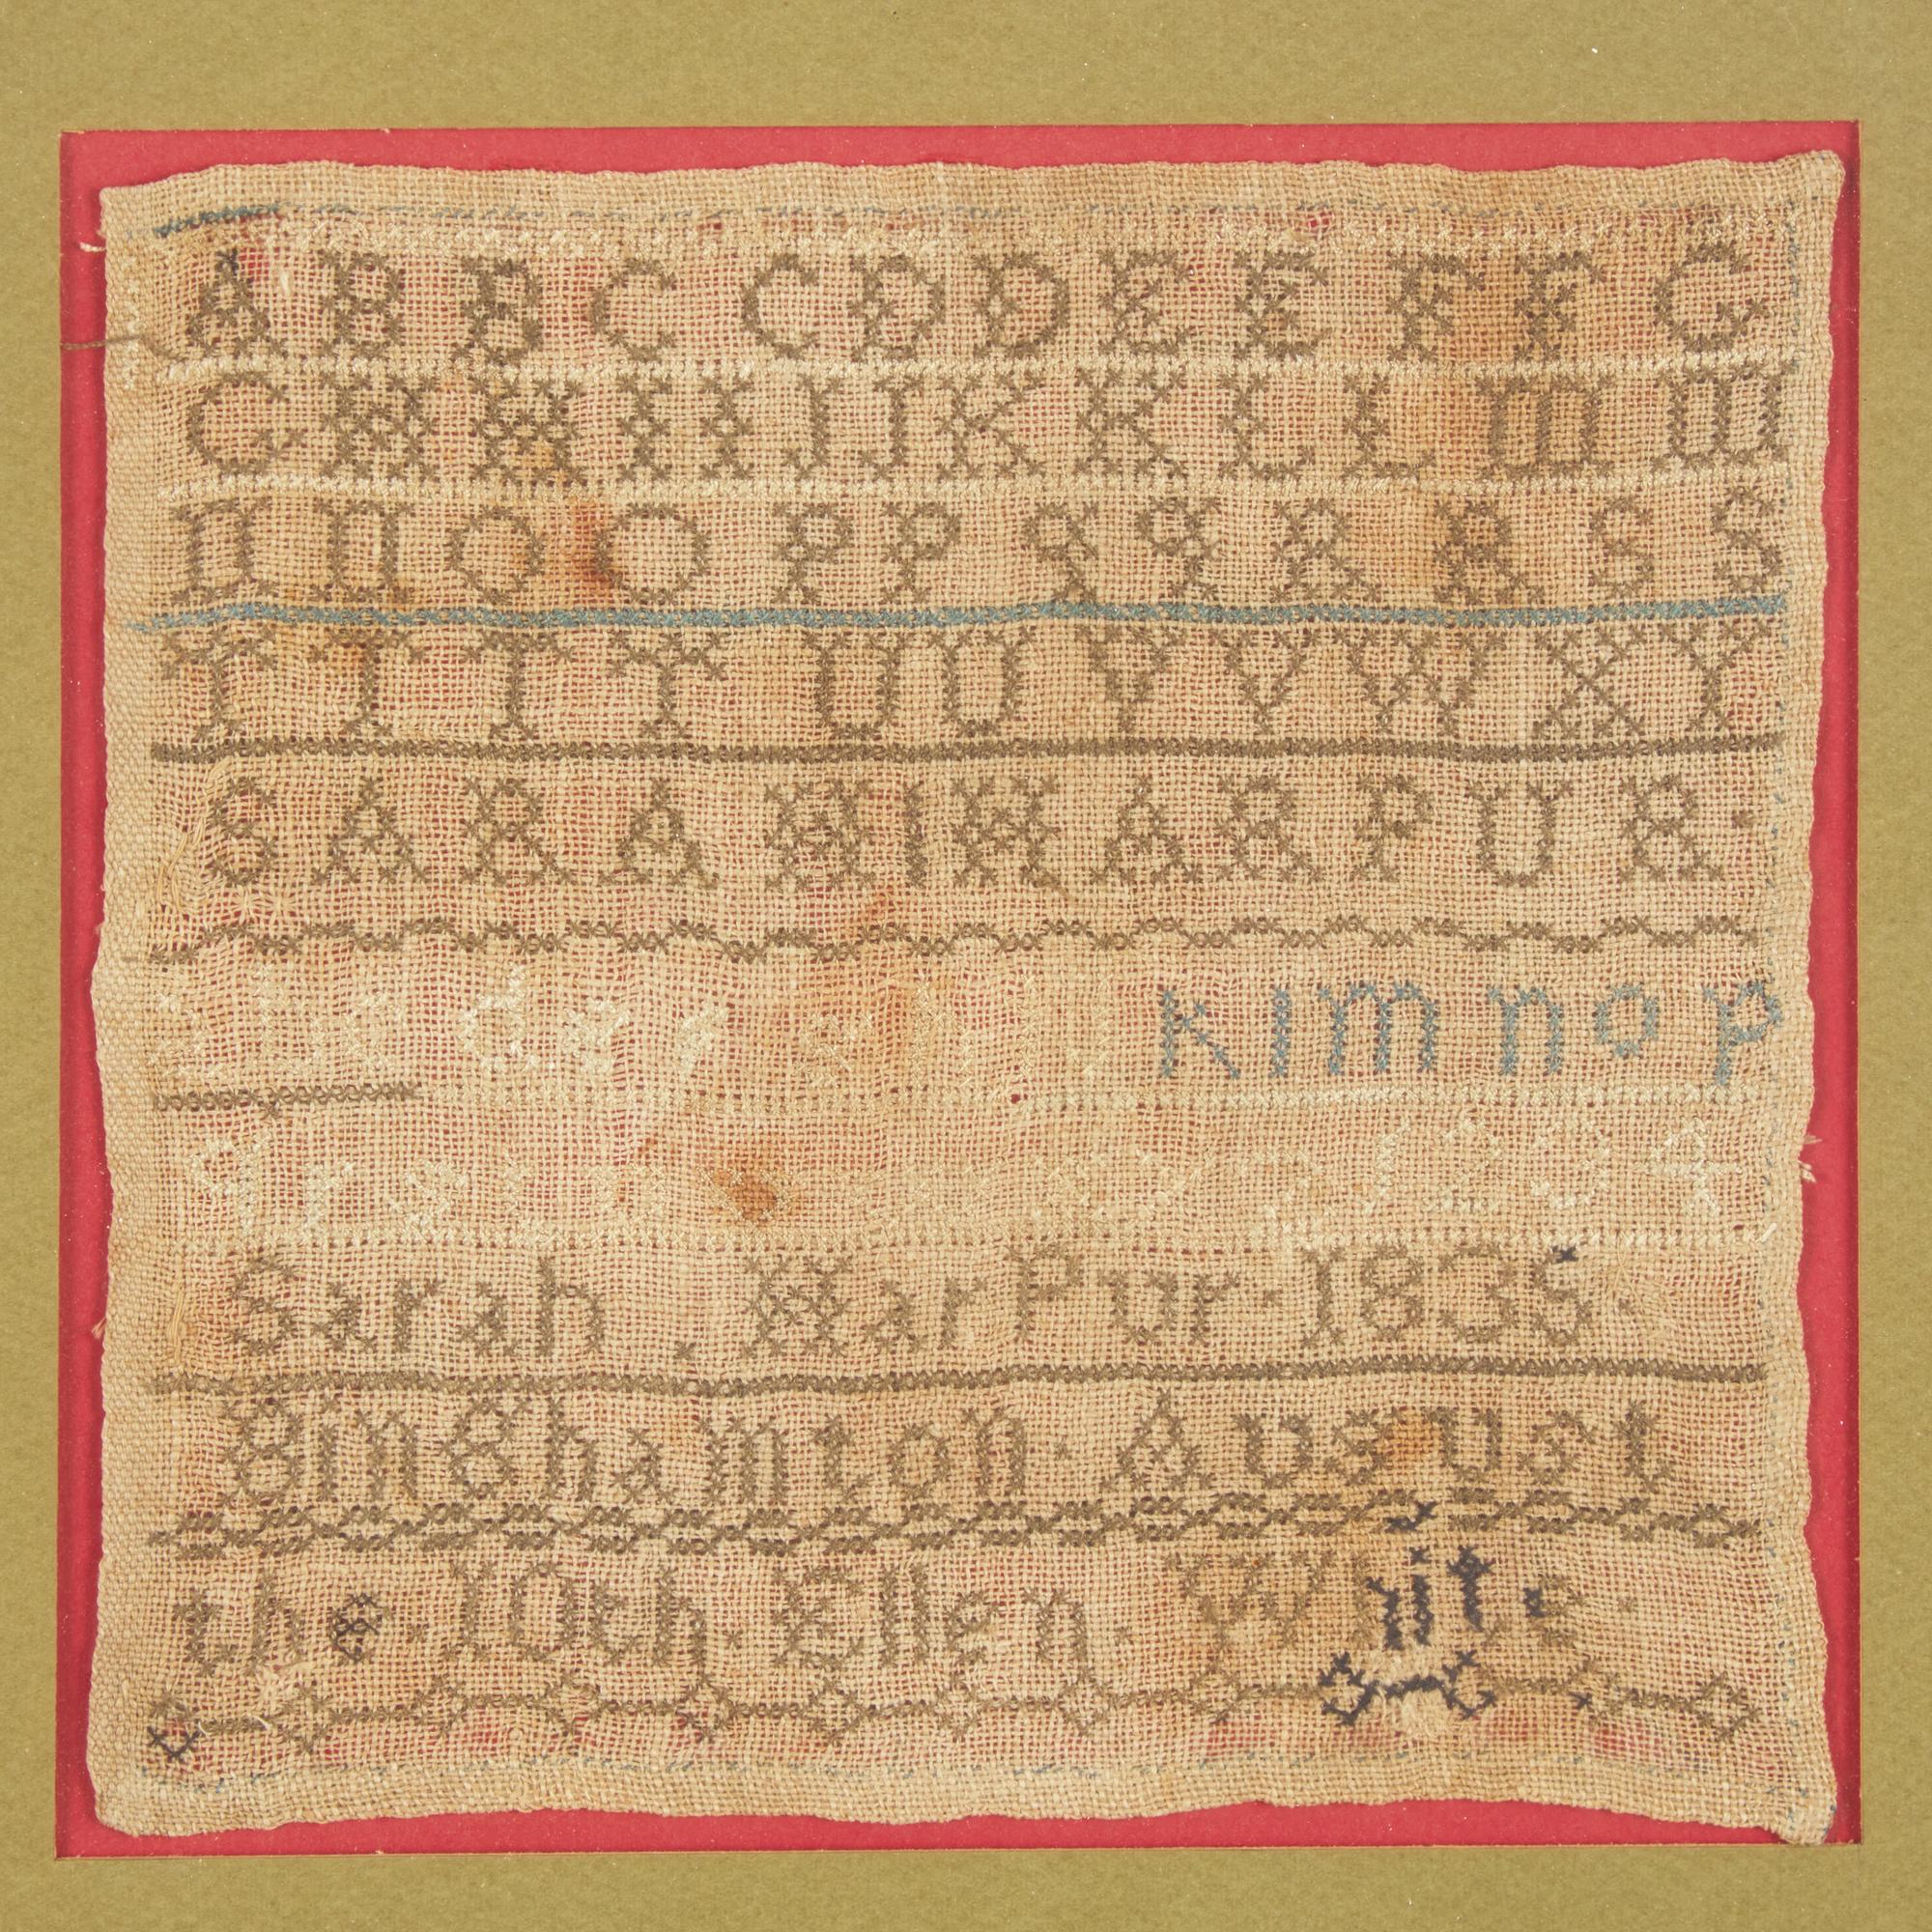 A B B C C D D E E F F G
G H H I I J J K K L L M M
N N O O P P Q Q R R S S
T T T T U U V V W X Y
SARAH HARPUR.
a b c d e f g h i j k l m n o p
q r s 1 2 3 4
Sarah . HarPur . 1835 .
BinGhamton . August
the . 10th . Ellen . White .